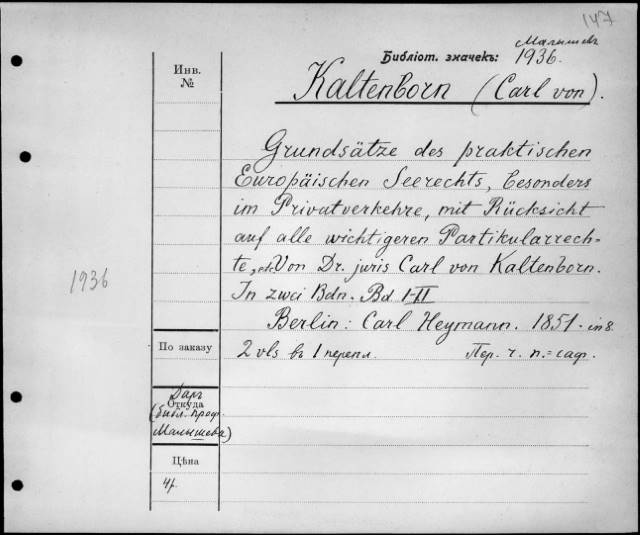 147
Малышев
Библіот. значекъ: 1936.
Инв.
№
Kaltenborn (Carl von).
Grundsätze des praktischen
Europäischen Seerechts, besonders
im Privatverkehre, mit Rücksicht
auf alle wichtigeren Partikularrech-
te, etc. Von Dr. juris Carl von Kaltenborn.
In zwei Bdn. Bd I-II
1936
Berlin: Carl Heymann. 1851. in 8.
По заказу
2 vls въ 1 перепл. Пер. ч. п. = саф.
Даръ
Откуда
(библ. проф.
Малышева)
Цѣна
4р.